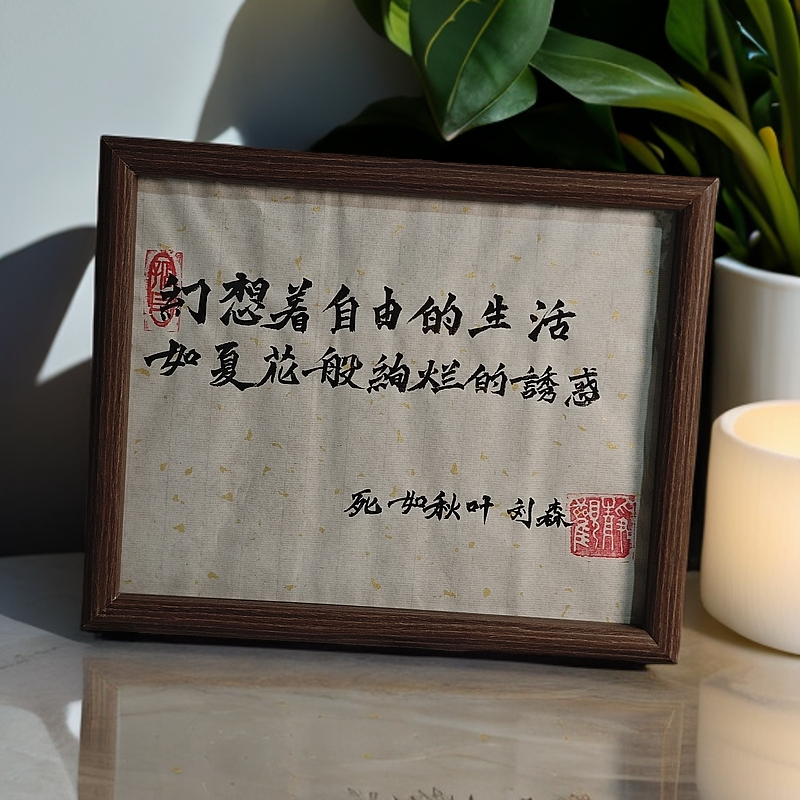 幻想着自由的生活
如夏花般絢烂的誘惑
死如秋叶 刘森
靜觀